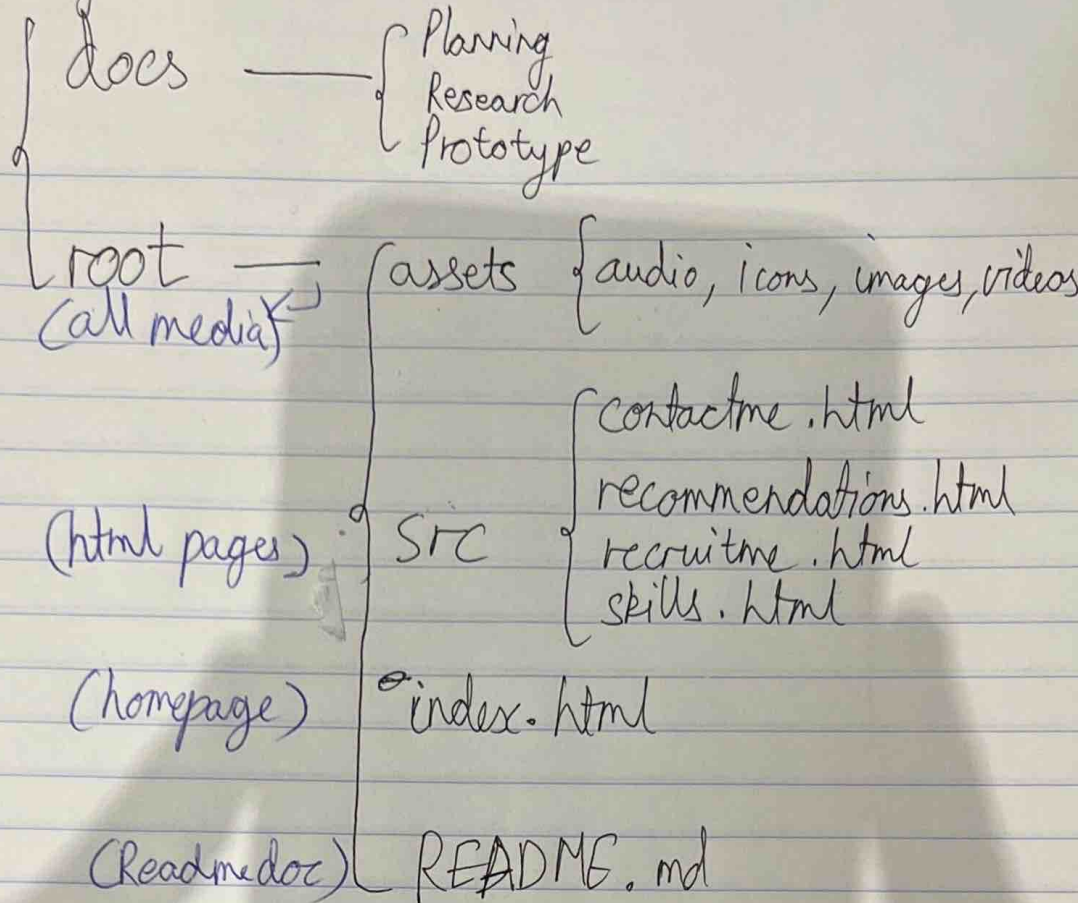 docs — Planning
Research
Prototype
root — assets audio, icons, images, videos
(all media)
contactme.html
recommendations.html
(html pages) src recruitme.html
skills.html
(homepage) index.html
(Readmedoc) README.md